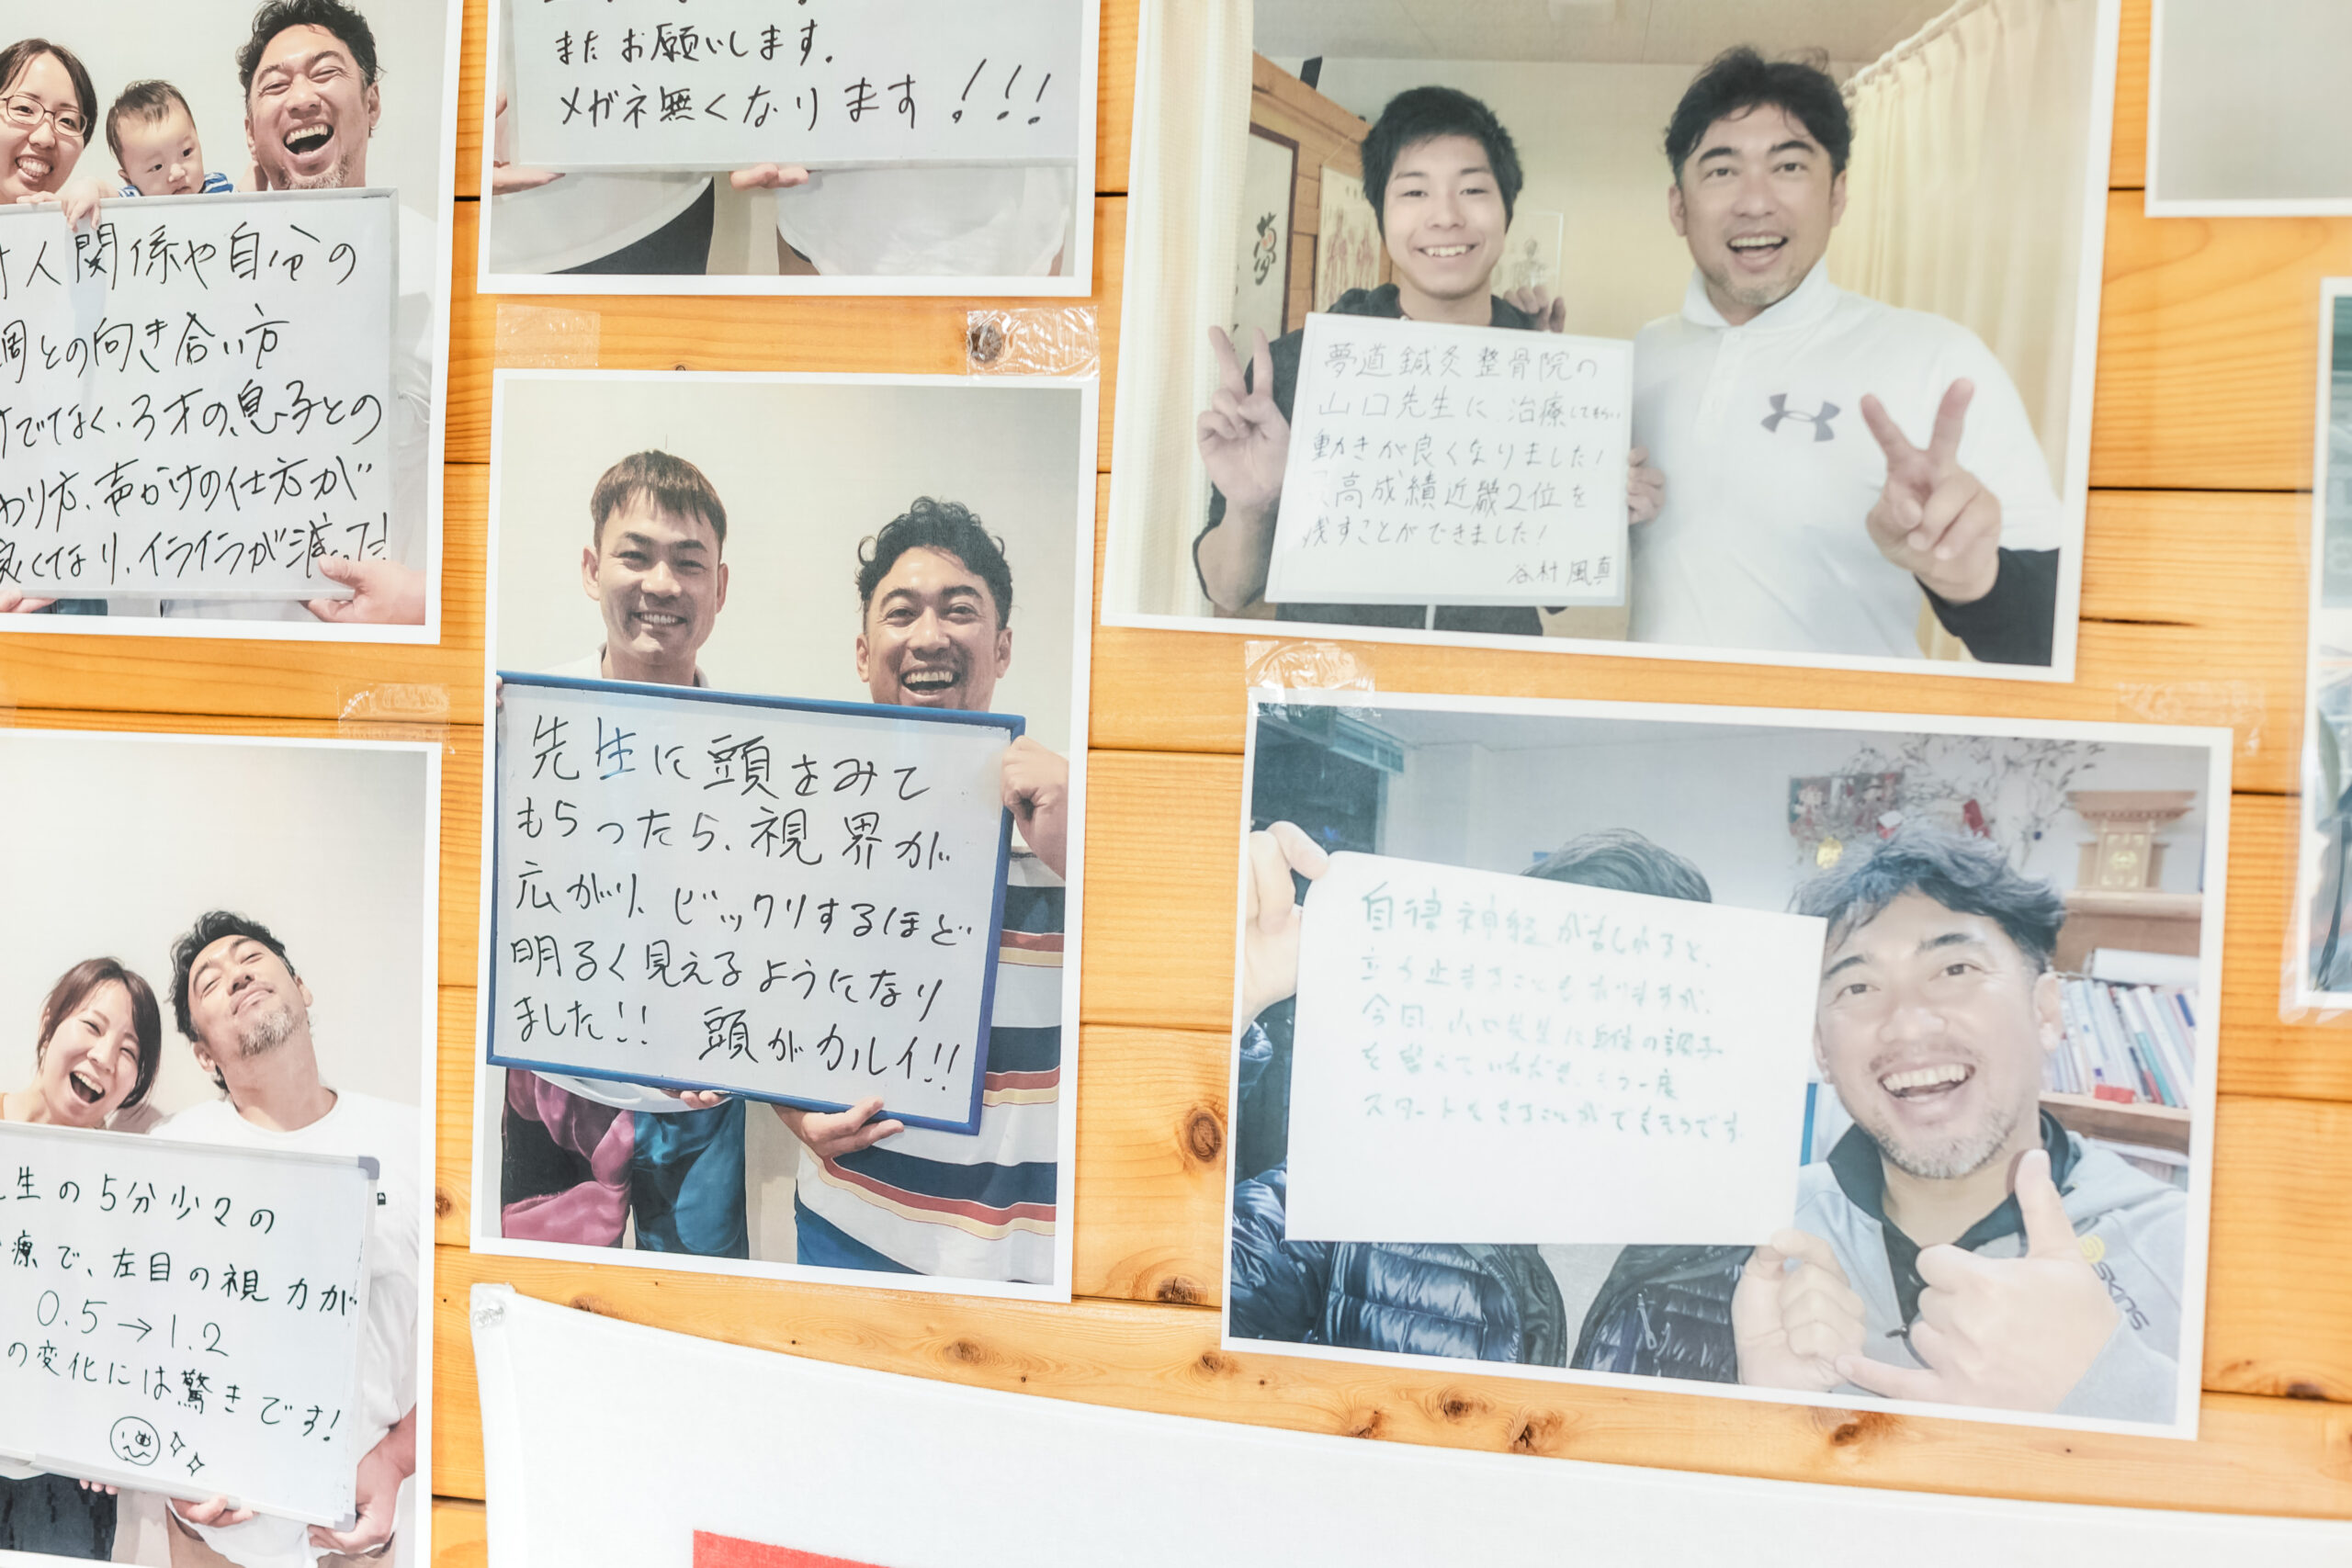 またお願いします。
メガネ無くなります!!!
人関係や自分の
との向き合い方
でなく、3才の息子との
わり方、声かけの仕方が
良くなり、イライラが減った!
夢
夢道鍼灸整骨院の
山口先生に治療してもらい
動きが良くなりました!
高成績近畿2位を
残すことができました!
谷村 風真
先生に頭をみて
もらったら、視界が
広がり、ビックリするほど
明るく見えるようになり
ました!! 頭がカルイ!!
自律神経が乱れると、
立ち止まることもありますが、
今回 山口先生に身体の調子
を整えていただき、もう一度
スタートをきることができそうです。
SKINS
生の5分少々の
療で、左目の視力が
0.5→1.2
の変化には驚きです!